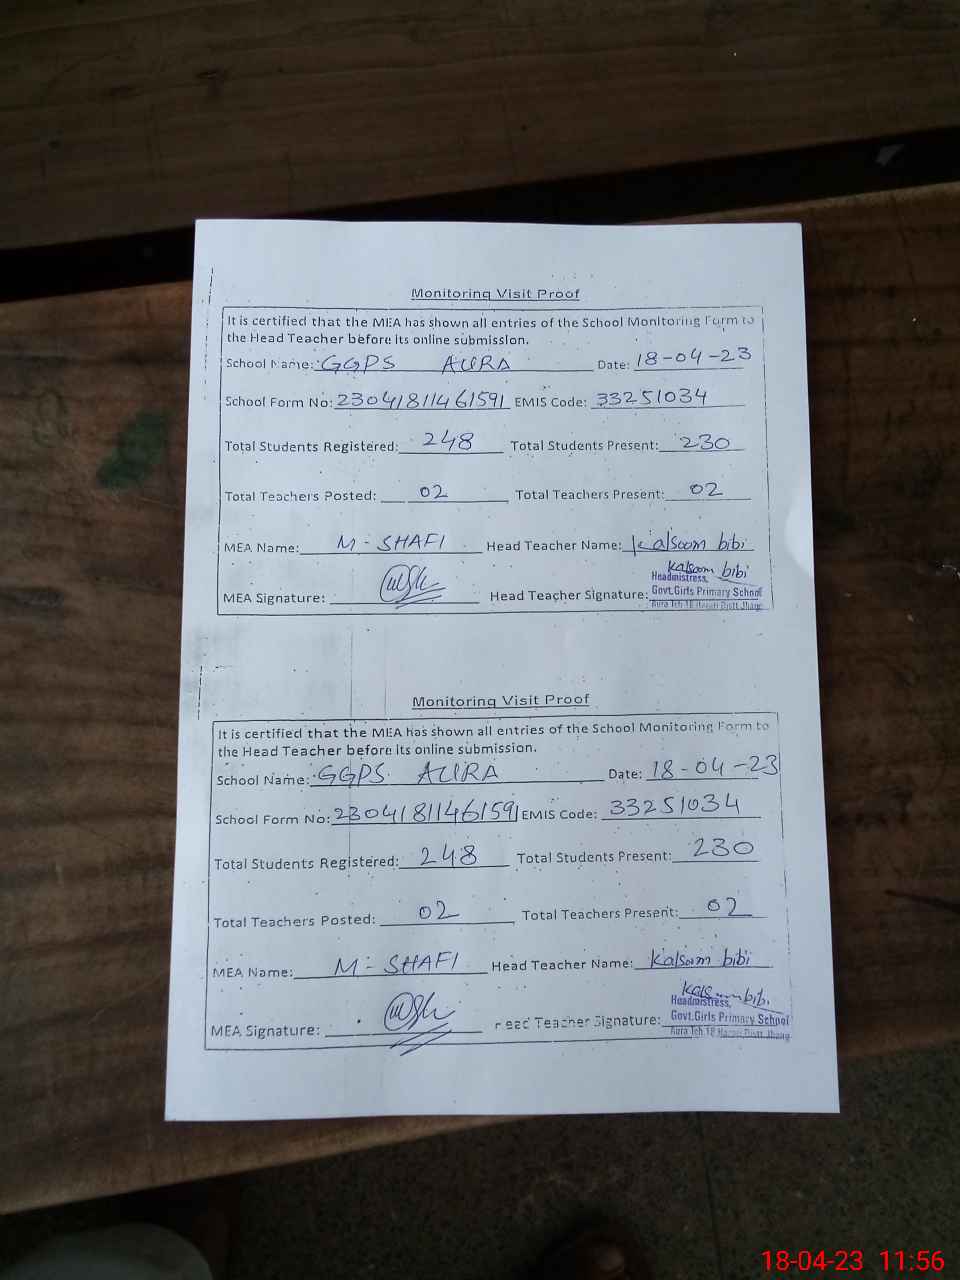 Monitoring Visit Proof
It is certified that the MEA has shown all entries of the School Monitoring Form to
the Head Teacher before its online submission.
School Name: GGPS AURA Date: 18-04-23
School Form No: 23041811461591 EMIS Code: 33251034
Total Students Registered: 248 Total Students Present: 230
Total Teachers Posted: 02 Total Teachers Present: 02
MEA Name: M-SHAFI Head Teacher Name: Kalsoom bibi
Kalsoom bibi
Headmistress,
MEA Signature: Head Teacher Signature: Govt.Girls Primary School
Aura Teh.18 Hazari Distt.Jhang
Monitoring Visit Proof
It is certified that the MEA has shown all entries of the School Monitoring Form to
the Head Teacher before its online submission.
School Name: GGPS AURA Date: 18-04-23
School Form No: 23041811461591 EMIS Code: 33251034
Total Students Registered: 248 Total Students Present: 230
Total Teachers Posted: 02 Total Teachers Present: 02
MEA Name: M-SHAFI Head Teacher Name: Kalsoom bibi
Kalsoom bibi
Headmistress,
MEA Signature: Head Teacher Signature: Govt.Girls Primary School
Aura Teh.18 Hazari Distt.Jhang
18-04-23 11:56